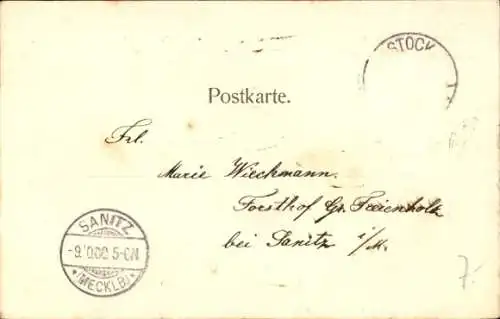 STOCK
Postkarte.
Frl.
Marie Wieckmann.
Forsthof Gr. Freienholz
bei Sanitz i/M.
SANITZ
5-6N
* (MECKLB) *
7.-